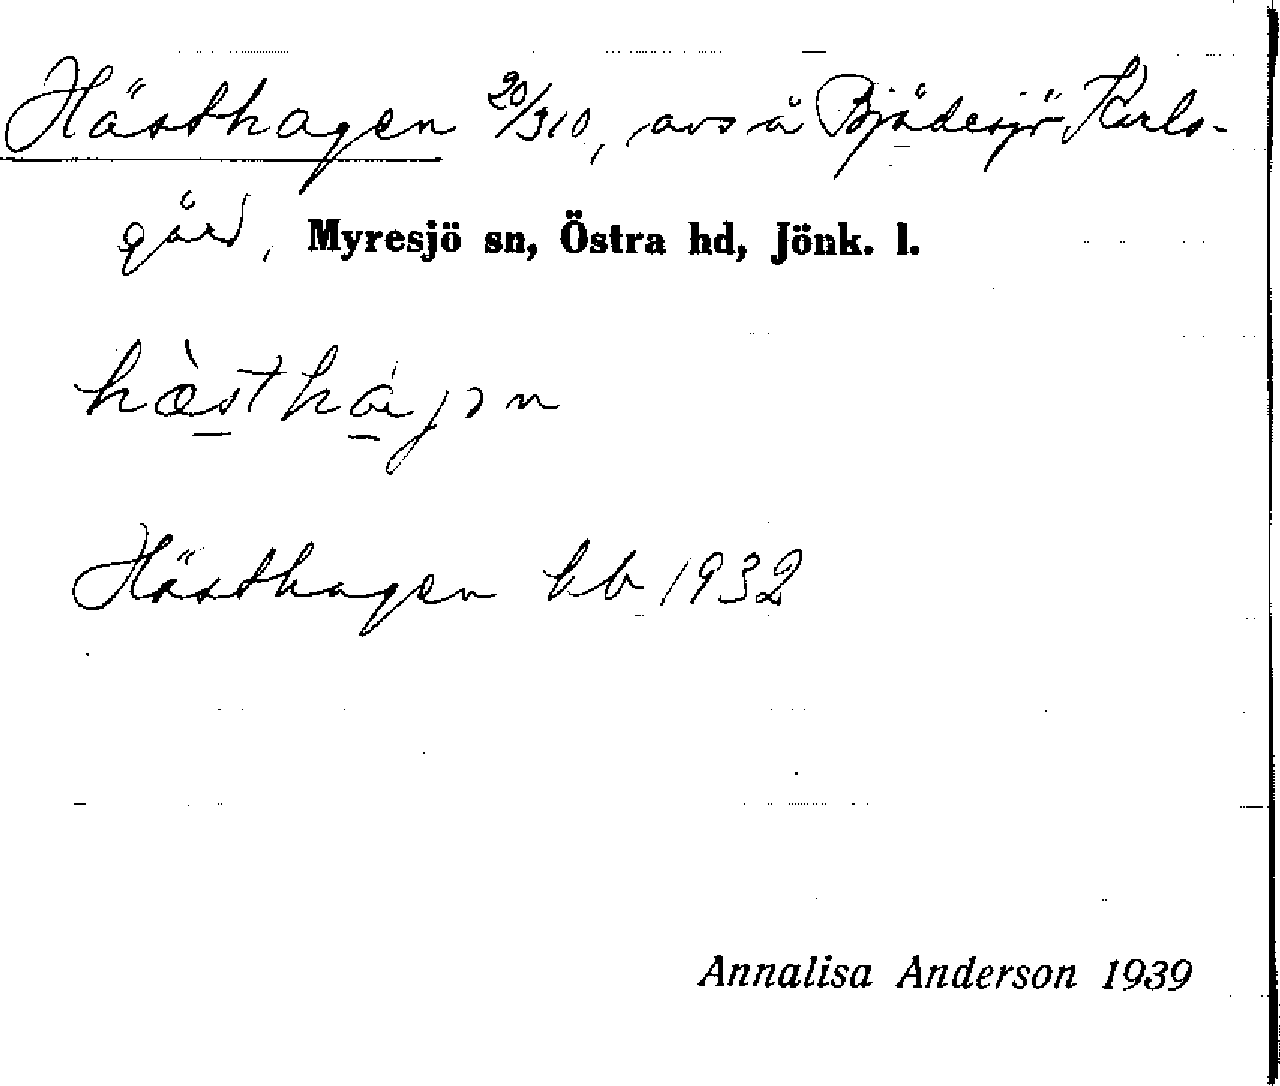 Hästhagen 20/310, avs å Bjädesjö Karls-
gård, Myresjö sn, Östra hd, Jönk. l.
hæ̀sthágən
Hästhagen hb 1932
Annalisa Anderson 1939